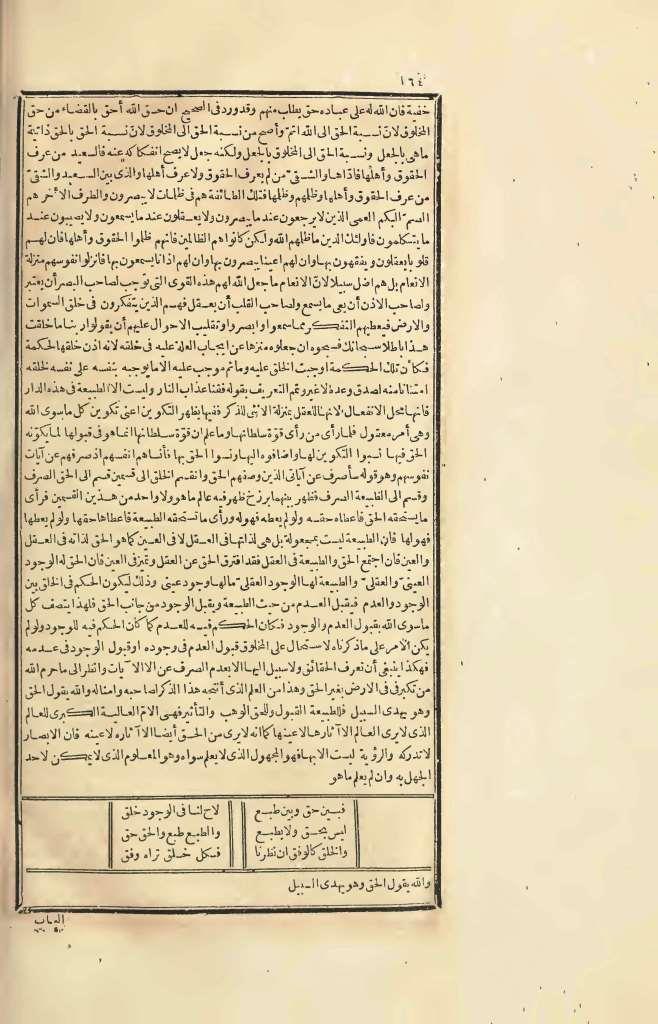 ١٦٤
خفية فان الله له على عباده حق يطلب منهم وقد ورد فى الصحيح ان حق الله أحق بالقضاء من حق
المخلوق لان نسبة الحق الى الله اتم وأصح من نسبة الحق الى المخلوق لان نسبة الحق بالحق ذاتية
ماهى بالجعل ونسبة الحق الى المخلوق بالجعل ولكنه جعل لا يصح انفكاكه عنه فالسعيد من عرف
الحقوق وأهلها فاداها والشقى من لم يعرف الحقوق ولا عرف أهلها والذى بين السعيد والشقى
من عرف الحقوق وأهلها وظلمهم وظلمها فتلك الطائفة هم فى ظلمات لا يبصرون والطرف الآخر هم
الصم البكم العمى الذين لا يرجعون عند ما يبصرون ولا يعقلون عند ما يسمعون ولا يصيبون عند
ما يتكلمون فاولئك الذين ما ظلمهم الله ولكن كانوا هم الظالمين فانهم ظلموا الحقوق وأهلها فان لهم
قلوبا يعقلون ويفقهون بها وان لهم اعينا يبصرون بها وان لهم اذانا يسمعون بها فانزلوا نفوسهم منزلة
الانعام بل هم اضل سبيلا لان الانعام ما جعل الله لهم هذه القوى التى توجب لصاحب البصر أن يعتبر
ولصاحب الاذن أن يعى ما يسمع ولصاحب القلب أن يعقل فهم الذين يتفكرون فى خلق السموات
والارض فيعطيهم التفكر مما سمعوا وابصروا وتقليب الاحوال عليهم أن يقولوا ربنا ما خلقت
هذا باطلا سبحانك فسبحوه ان جعلوه منزها عن ايجاب العلة عليه فى خلقه لانه اذن خلقها الحكمة
فكأن تلك الحكمة اوجبت الخلق عليه وما ثم موجب عليه الا ما يوجبه بنفسه على نفسه لخلقه
امتنانا منه اصدق وعده لا غير وتمم التعريف بقوله فقنا عذاب النار وليست الا الطبيعة فى هذه الدار
فانها محل الانفعال لانها للعقل بمنزلة الانثى للذكر ففيها يظهر التكوين اعنى تكوين كل ما سوى الله
وهى أمر معقول فلما رأى من رأى قوة سلطانها وما علم ان قوة سلطانها انما هو فى قبولها لما يكونه
الحق فيها نسبوا التكوين لها واضافوه اليها ونسوا الحق بها فأنساهم انفسهم اذ صرفهم عن آيات
نفوسهم وهو قوله سأصرف عن آياتى الذين وصفهم الحق وانقسم الخلق الى قسمين قسم الى الحق الصرف
وقسم الى الطبيعة الصرف فظهر بينهما برزخ ظهر فيه عالم ما هو ولا واحد من هذين القسمين فرأى
ما يستحقه الحق فاعطاه حقه ولو لم يعطه فهو له ورأى ما تستحقه الطبيعة فاعطاها حقها ولو لم يعطها
فهو لها فان الطبيعة ليست بمجعولة بل هى لذاتها فى العقل لا فى العين كما هو الحق لذاته فى العقل
والعين فان اجتمع الحق والطبيعة فى العقل فقد افترق الحق عن العقل وتميز فى العين فان الحق له الوجود
العينى والعقلى والطبيعة لها الوجود العقلى ما لها وجود عينى وذلك ليكون الحكم فى الخلق بين
الوجود والعدم فيقبل العدم من حيث الطبيعة ويقبل الوجود من جانب الحق فلهذا يتصف كل
ما سوى الله بقبول العدم والوجود فكان الحكم فيه للعدم كما كان الحكم فيه للوجود ولو لم
يكن الامر على ما ذكرناه لاستحال على المخلوق قبول العدم فى وجوده اوقبول الوجود فى عدمه
فهكذا ينبغى أن تعرف الحقائق ولا سبيل اليها الا بعدم الصرف عن الآيات وانظر الى ما حرم الله
من تكبر فى الارض بغير الحق وهذا من العلم الذى أنتجه هذا الذكر لصاحبه وامثاله والله يقول الحق
وهو يهدى السبيل فللطبيعة القبول وللحق الوهب والتأثير فهى الام العالية الكبرى للعالم
الذى لا يرى العالم الا آثارها لا عينها كما انه لا يرى من الحق أيضا الا آثاره لا عينه فان الابصار
لا تدركه والرؤية ليست الا بها فهو المجهول الذى لا يعلم سواه وهو المعلوم الذى لا يمكن لاحد
الجهل به وان لم يعلم ما هو
فبين حق وبين طبع لاح لنا فى الوجود خلق
ليس بحق ولا بطبع والطبع طبع والحق حق
والخلق كالوفق ان نظرنا فكل خلق تراه وفق
والله يقول الحق وهو يهدى السبيل
الباب